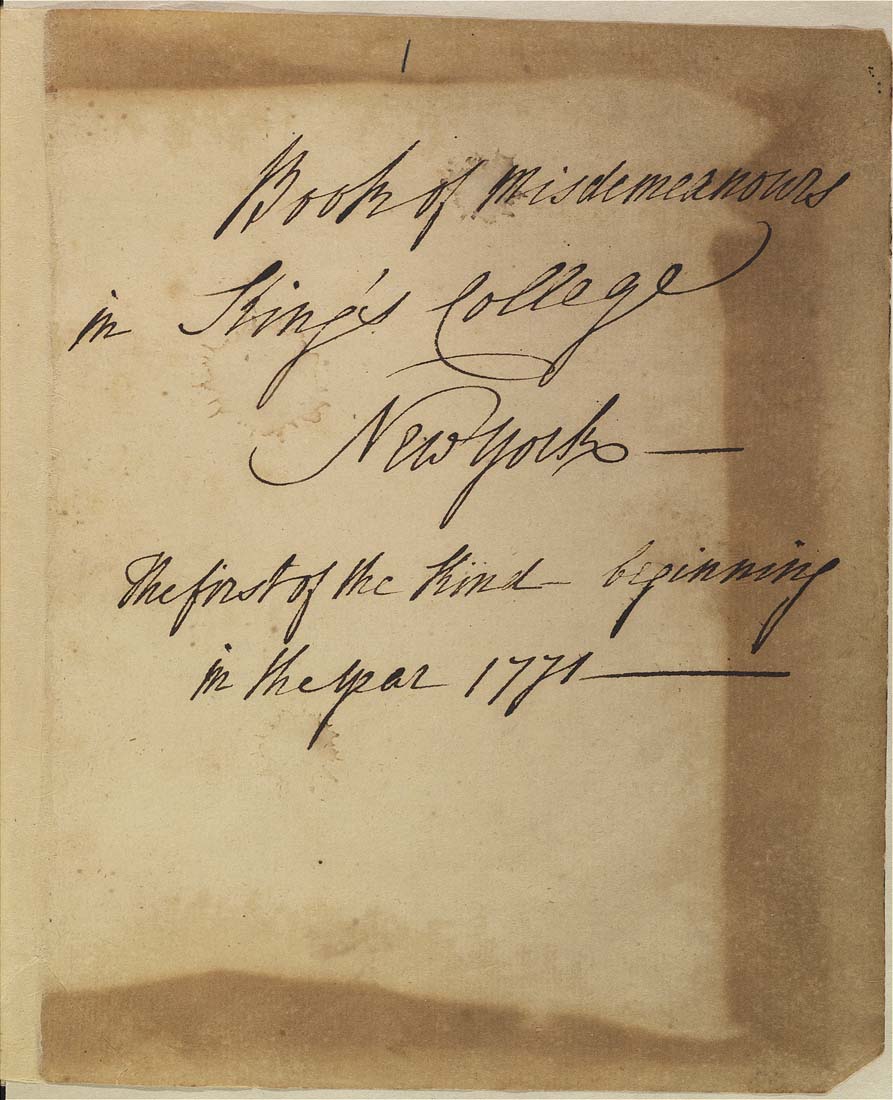 1
Book of Misdemeanours
in King's College
New York —
The first of the Kind — beginning
in the year 1771 —